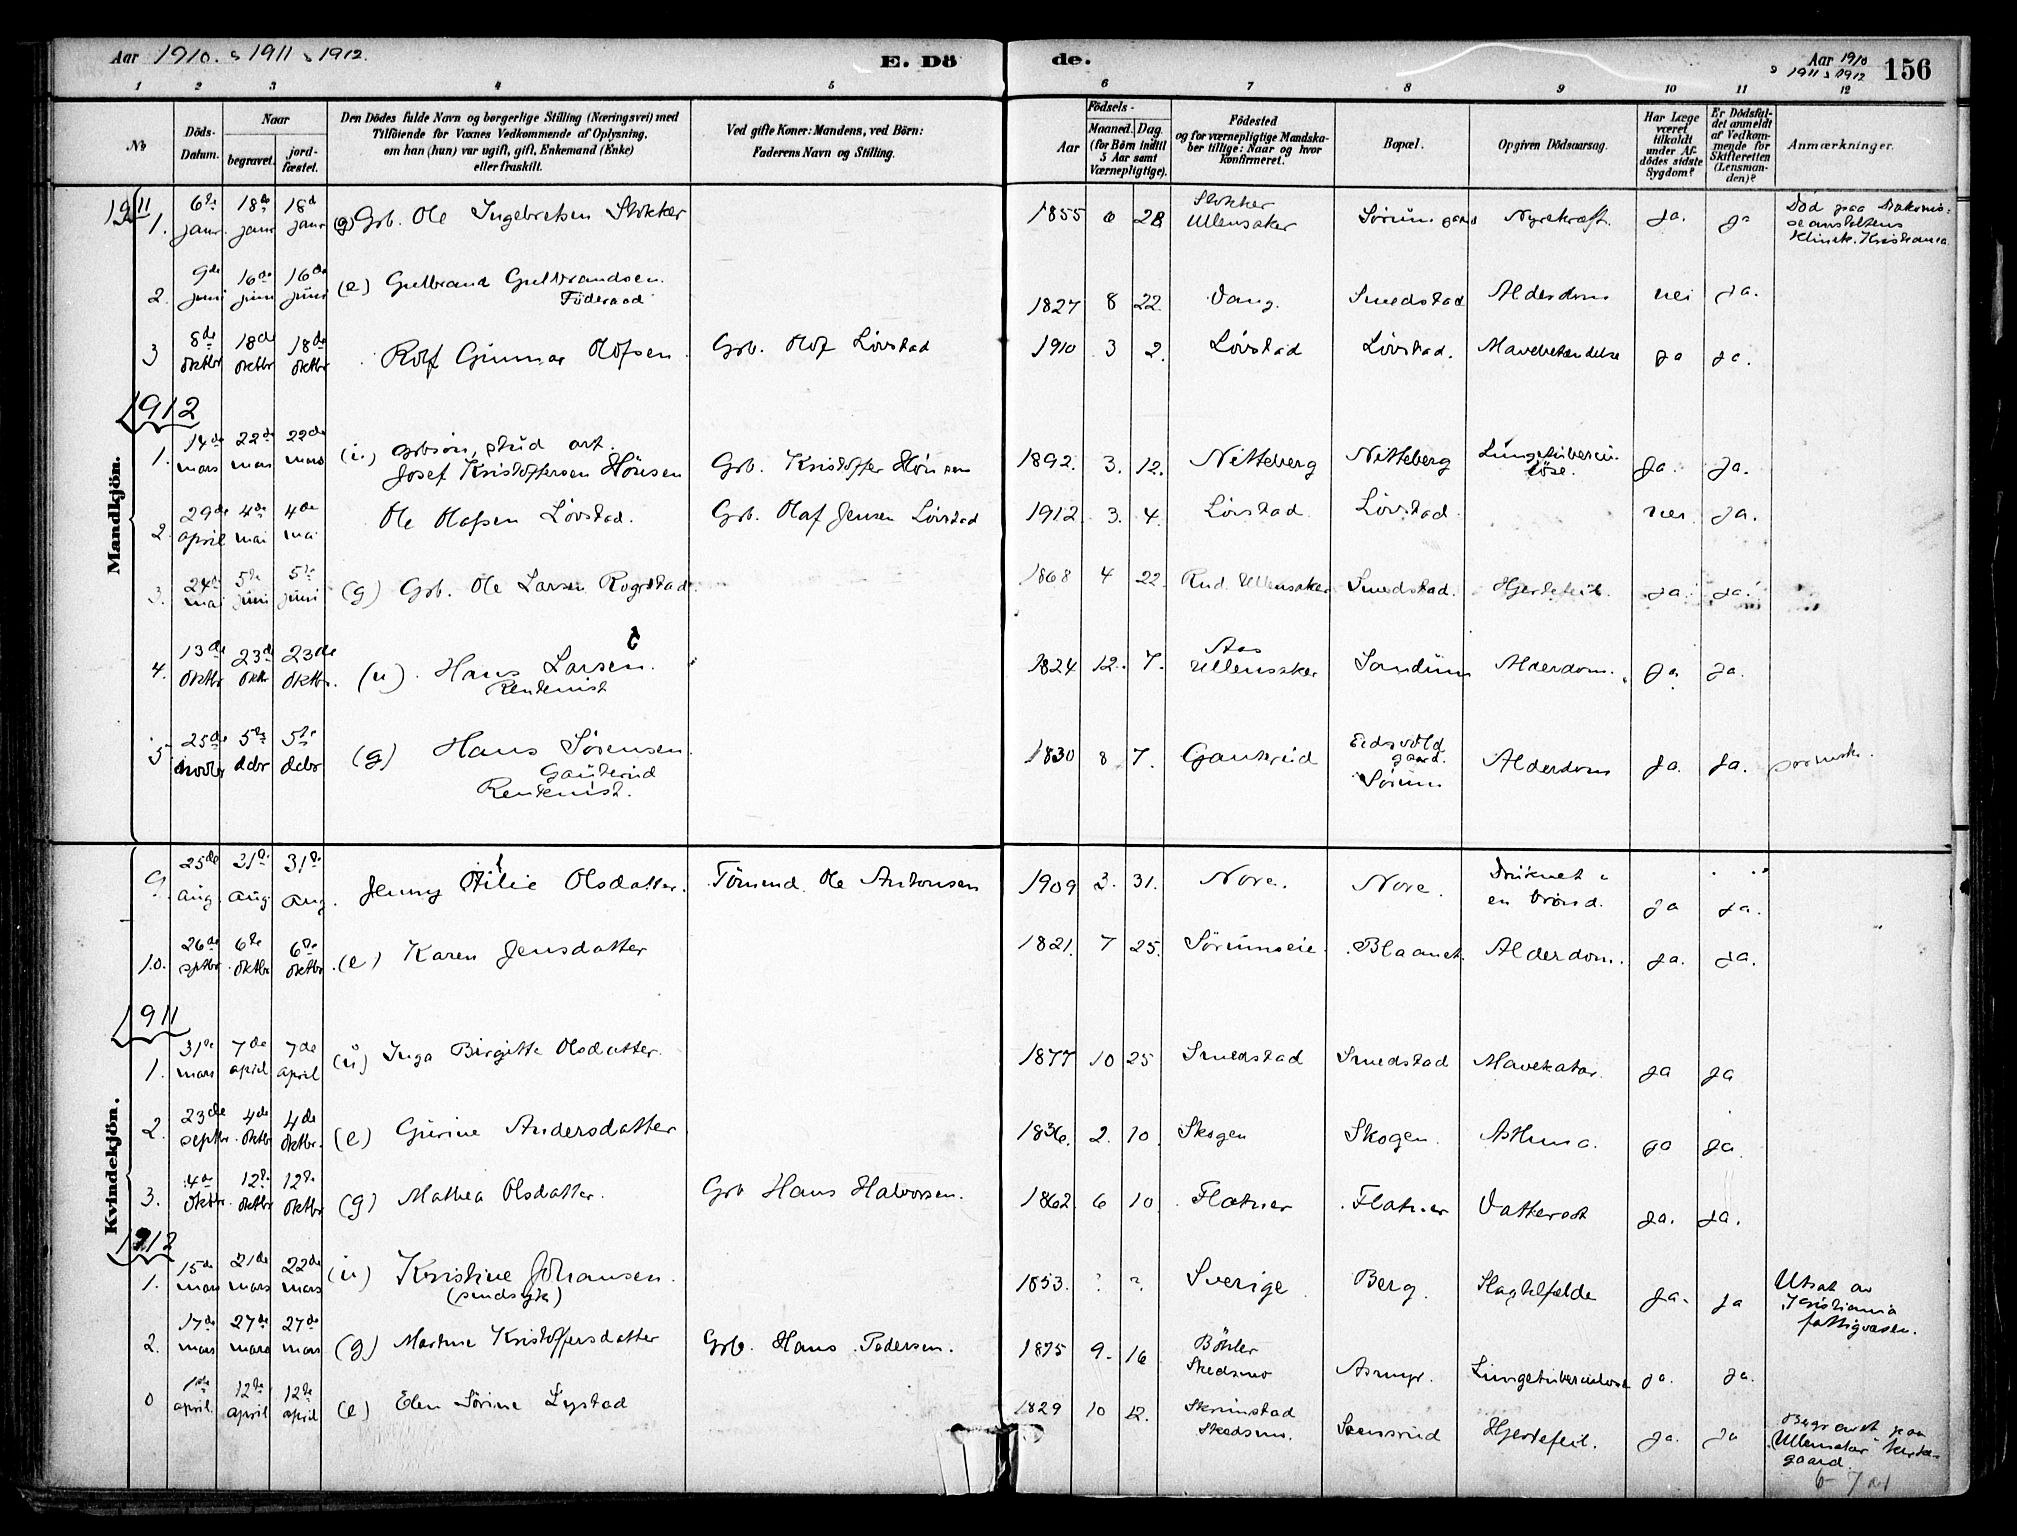 Aar 1910. & 1911 & 1912.
E. Dö
de.
Aar 1910
& 1911 & 1912
156
1 2 3 4 5 6 7 8 9 10 11 12
No
Döds-
Datum.
Naar
begravet.
jord-
fæstet.
Den Dödes fulde Navn og borgerlige Stilling (Næringsvei) med
Tilföiende for Voxnes Vedkommende af Oplysning,
om han (hun) var ugift, gift, Enkemand (Enke)
eller fraskilt.
Ved gifte Koner: Mandens, ved Börn:
Faderens Navn og Stilling.
Födsels-
Aar
Maaned. Dag.
(for Börn indtil
5 Aar samt
Værnepligtige).
Födested
og for værnepligtige Mandska-
ber tillige: Naar og hvor
Konfirmeret.
Bopæl.
Opgiven Dödsaarsag.
Har Læge
været
tilkaldt
under Af-
dödes sidste
Sygdom?
Er Dödsfal-
det anmeldt
af Vedkom-
mende for
Skifteretten
(Lensman-
den)?
Anmærkninger.
Mandkjön.
1911
1. 6te janr 18de janr 18d janr (g) Grb. Ole Ingebretsen Slokker 1855 0 28 Slokker Ullensaker Sörum gaard Nyrekræft. ja. ja Död paa Diakonis-
seanstaltens
Klinik. Kristiania
2. 9de juni 16de juni 16de juni (e) Gulbrand Gulbrandsen. Föderaad 1827 8 22 Vang. Smedstad Alderdom nei ja.
3 8de oktbr 18de oktbr 18de oktbr Rolf Gunnar Olofsen. Grb. Olof Lövstad 1910 3 2. Lövstad Lövstad. Mavebetændelse ja ja.
1912
1. 14de mars 22de mars 22de mars (u.) Grbsön, stud art.
Josef Kristoffersen Hönsen Grb. Kristoffer Hönsen 1892. 3. 12. Nitteberg Nitteberg Lungetubercu-
löse. ja. ja.
2. 29de april 4de mai 4de mai Ole Olafsen Lövstad. Grb. Olaf Jensen Lövstad 1912. 3. 4. Lövstad Lövstad. nei. ja.
3. 24de mai 5te juni 5te juni (g) Grb. Ole Larsen Rogstad. 1868 4 22. Rud Ullensaker Smedstad. Hjertefeil. ja. ja.
4. 13de oktbr 23de oktbr 23de oktbr. (u). Hans Larsen.
Rentenist 1824 12. 7. Aas
Ullensaker Alderdom. ja ja.
5 25de novbr 5te dcbr 5te dcbr (g) Hans Sörensen.
Gauterud
Rentenist. 1830 8 7. Gauterud Eidsvold
gaard.
Sörum Alderdom ja. ja.
Kvindekjön.
9. 25de aug. 31te aug 31te aug. Jenny Otilie Olsdatter. Tömmd. Ole Antonsen 1909 3. 31. Nore. Nore. Druknet i
en brönd. ja ja.
10. 26de sptbr 6te oktbr 6te oktbr (e) Karen Jensdatter 1821. 7 25. Sörumseie. Blaanet. Alderdom. ja. ja.
1911
1. 31te mars 7de april 7de april (u) Inga Birgitte Olsdatter. 1877 10 25 Smedstad Smedstad Mavekatar. ja ja
2. 23de septbr. 4de oktbr 4de oktbr. (e) Gurine Andersdatter 1836. 2. 10. Skogen Skogen. Asthma. ja ja.
3. 4de oktbr. 12te oktbr 12te oktbr (g) Mathea Olsdatter. Grb Hans Halvorsen. 1862. 6 10. Flatner Flatner Vattersot ja. ja.
1912
1. 15de mars 21de mars 22de mars (u) Kristine Johansen.
(sindsyk) 1853. ? ?. Sverige Berg. Slagtilfælde ja. ja Utsat av
Kristiania
fattigvæsen.
2. 17de mars 27de mars 27de mars (g) Martine Kristoffersdatter Grb. Hans Pedersen. 1875 9. 16 Böhler
Skedsmo Asmyr. Lungetuberculose ja. ja.
0 1ste april. 12te april 12te april (e) Elen Sörine Lystad 1829 10 12. Skrimstad
Skedsmo. Hjertefeil. ja. ja Begravet paa
Ullensaker kirke-
gaard.